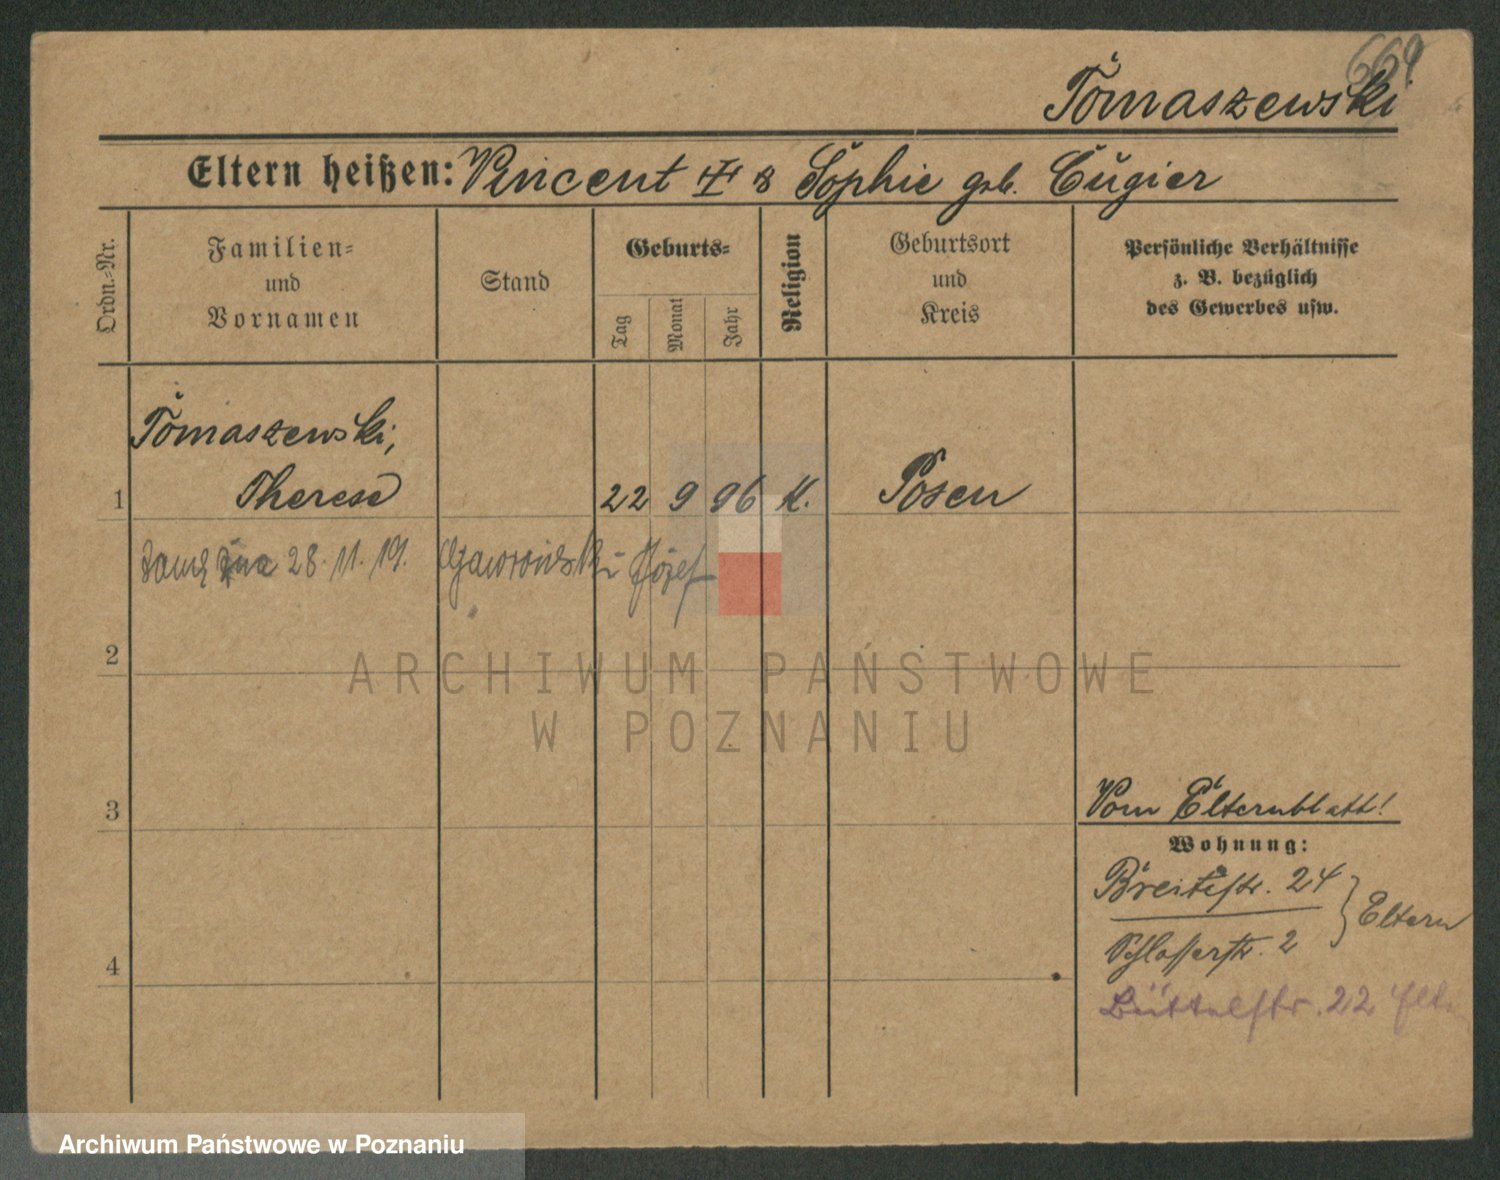 669
Tomaszewski
Eltern heißen: Vincent & Sophie geb. Cugier
Ordn.-Nr.
Familien-
und
Vornamen
Stand
Geburts-
Tag
Monat
Jahr
Religion
Geburtsort
und
Kreis
Persönliche Verhältnisse
z. B. bezüglich
des Gewerbes usw.
Tomaszewski,
1 Therese 22 9 96 K. Posen
28.11.19. Józef
2
3
Vom Elternblatt!
Wohnung:
Breitestr. 24
Eltern
Schlosserstr. 2
4
Büttelstr. 22
ARCHIWUM PAŃSTWOWE
W POZNANIU
Archiwum Państwowe w Poznaniu